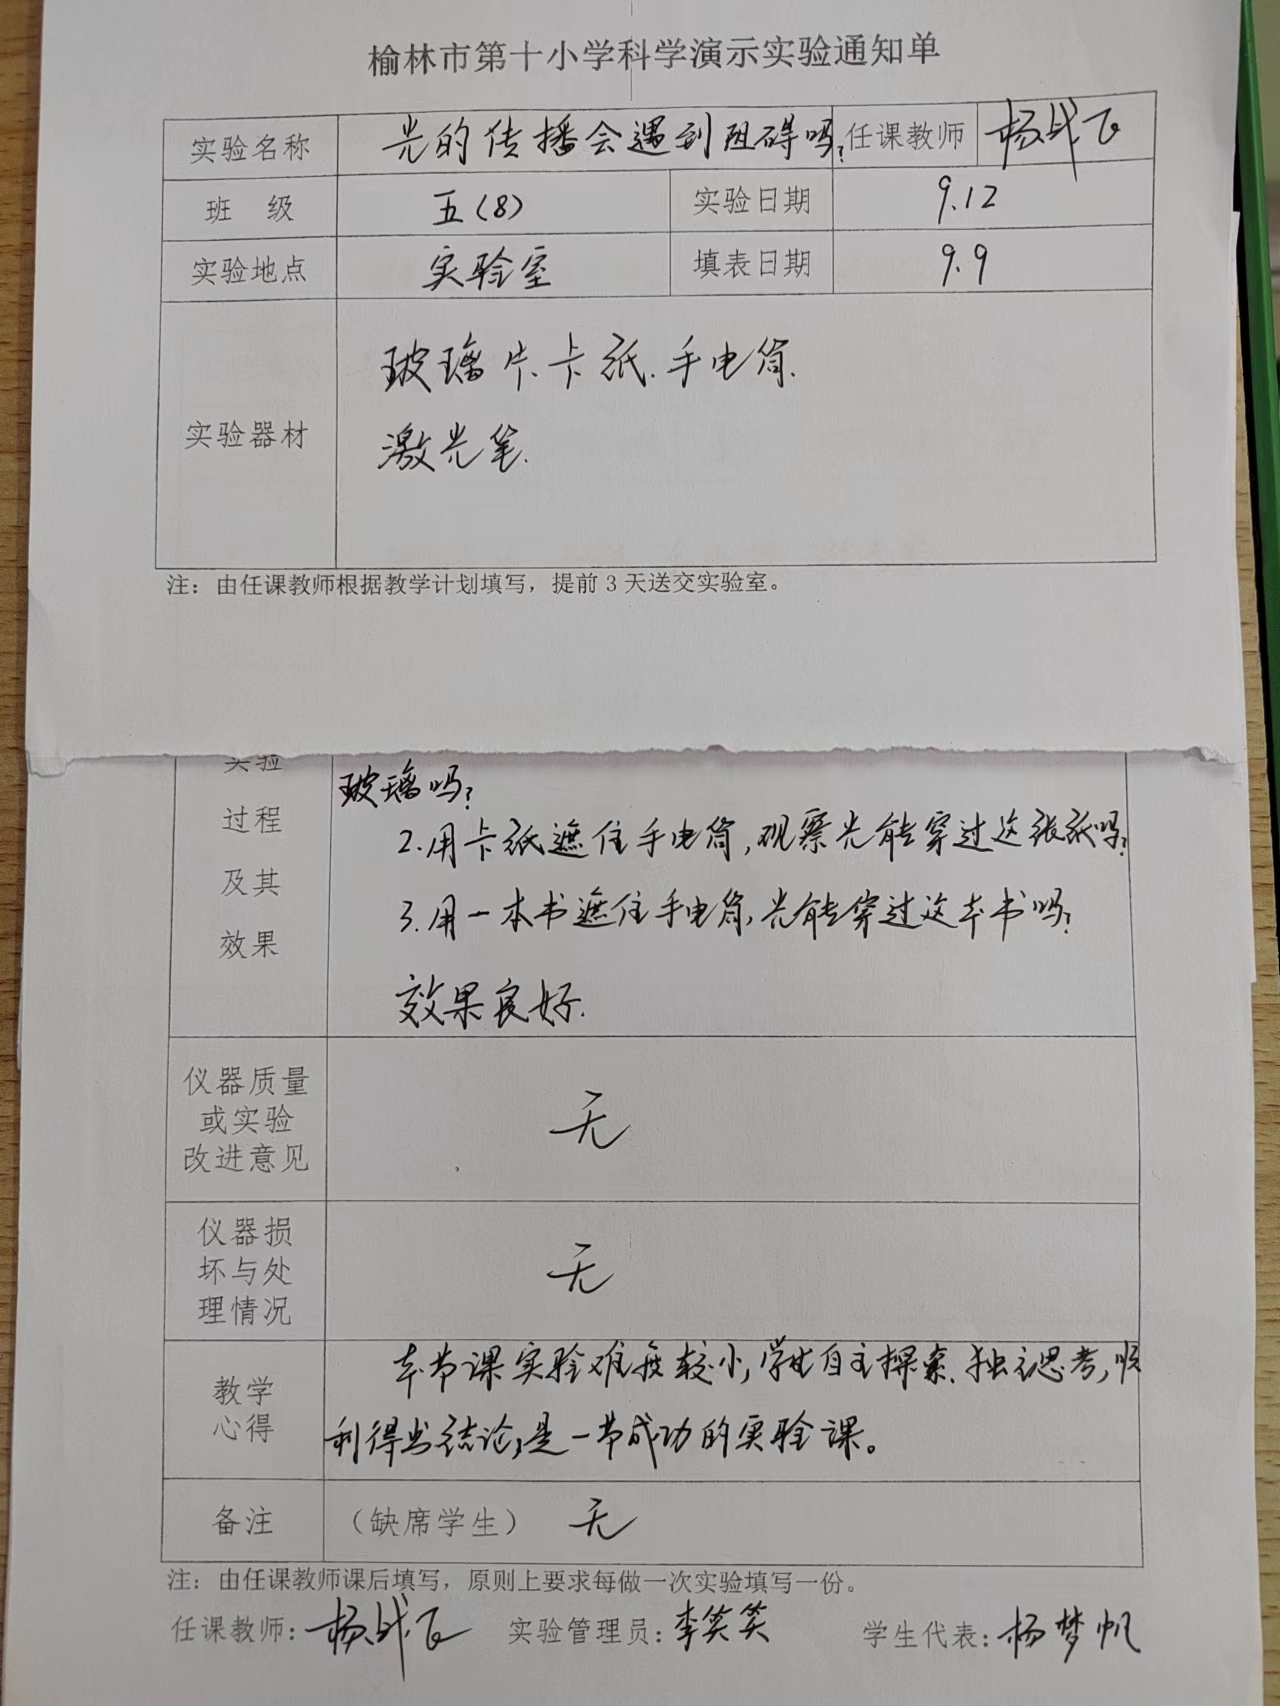 榆林市第十小学科学演示实验通知单
实验名称 光的传播会遇到阻碍吗? 任课教师 杨战飞
班 级 五(8) 实验日期 9.12
实验地点 实验室 填表日期 9.9
实验器材
玻璃片、卡纸、手电筒、
激光笔.
注：由任课教师根据教学计划填写，提前3天送交实验室。
实验
过程
及其
效果
玻璃吗?
2.用卡纸遮住手电筒,观察光能穿过这张纸吗?
3.用一本书遮住手电筒,光能穿过这本书吗?
效果良好.
仪器质量
或实验
改进意见
无
仪器损
坏与处
理情况
无
教学
心得
本节课实验难度较小,学生自主探索、独立思考,顺
利得出结论,是一节成功的实验课。
备注 （缺席学生） 无
注：由任课教师课后填写，原则上要求每做一次实验填写一份。
任课教师: 杨战飞 实验管理员: 李笑笑 学生代表: 杨梦帆